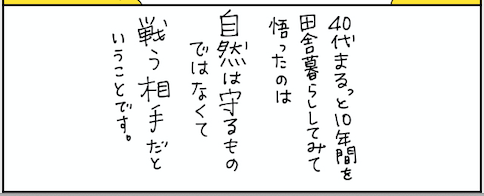 40代まるっと10年間を
田舎暮らししてみて
悟ったのは
自然は守るもの
ではなくて
戦う相手だと
いうことです。